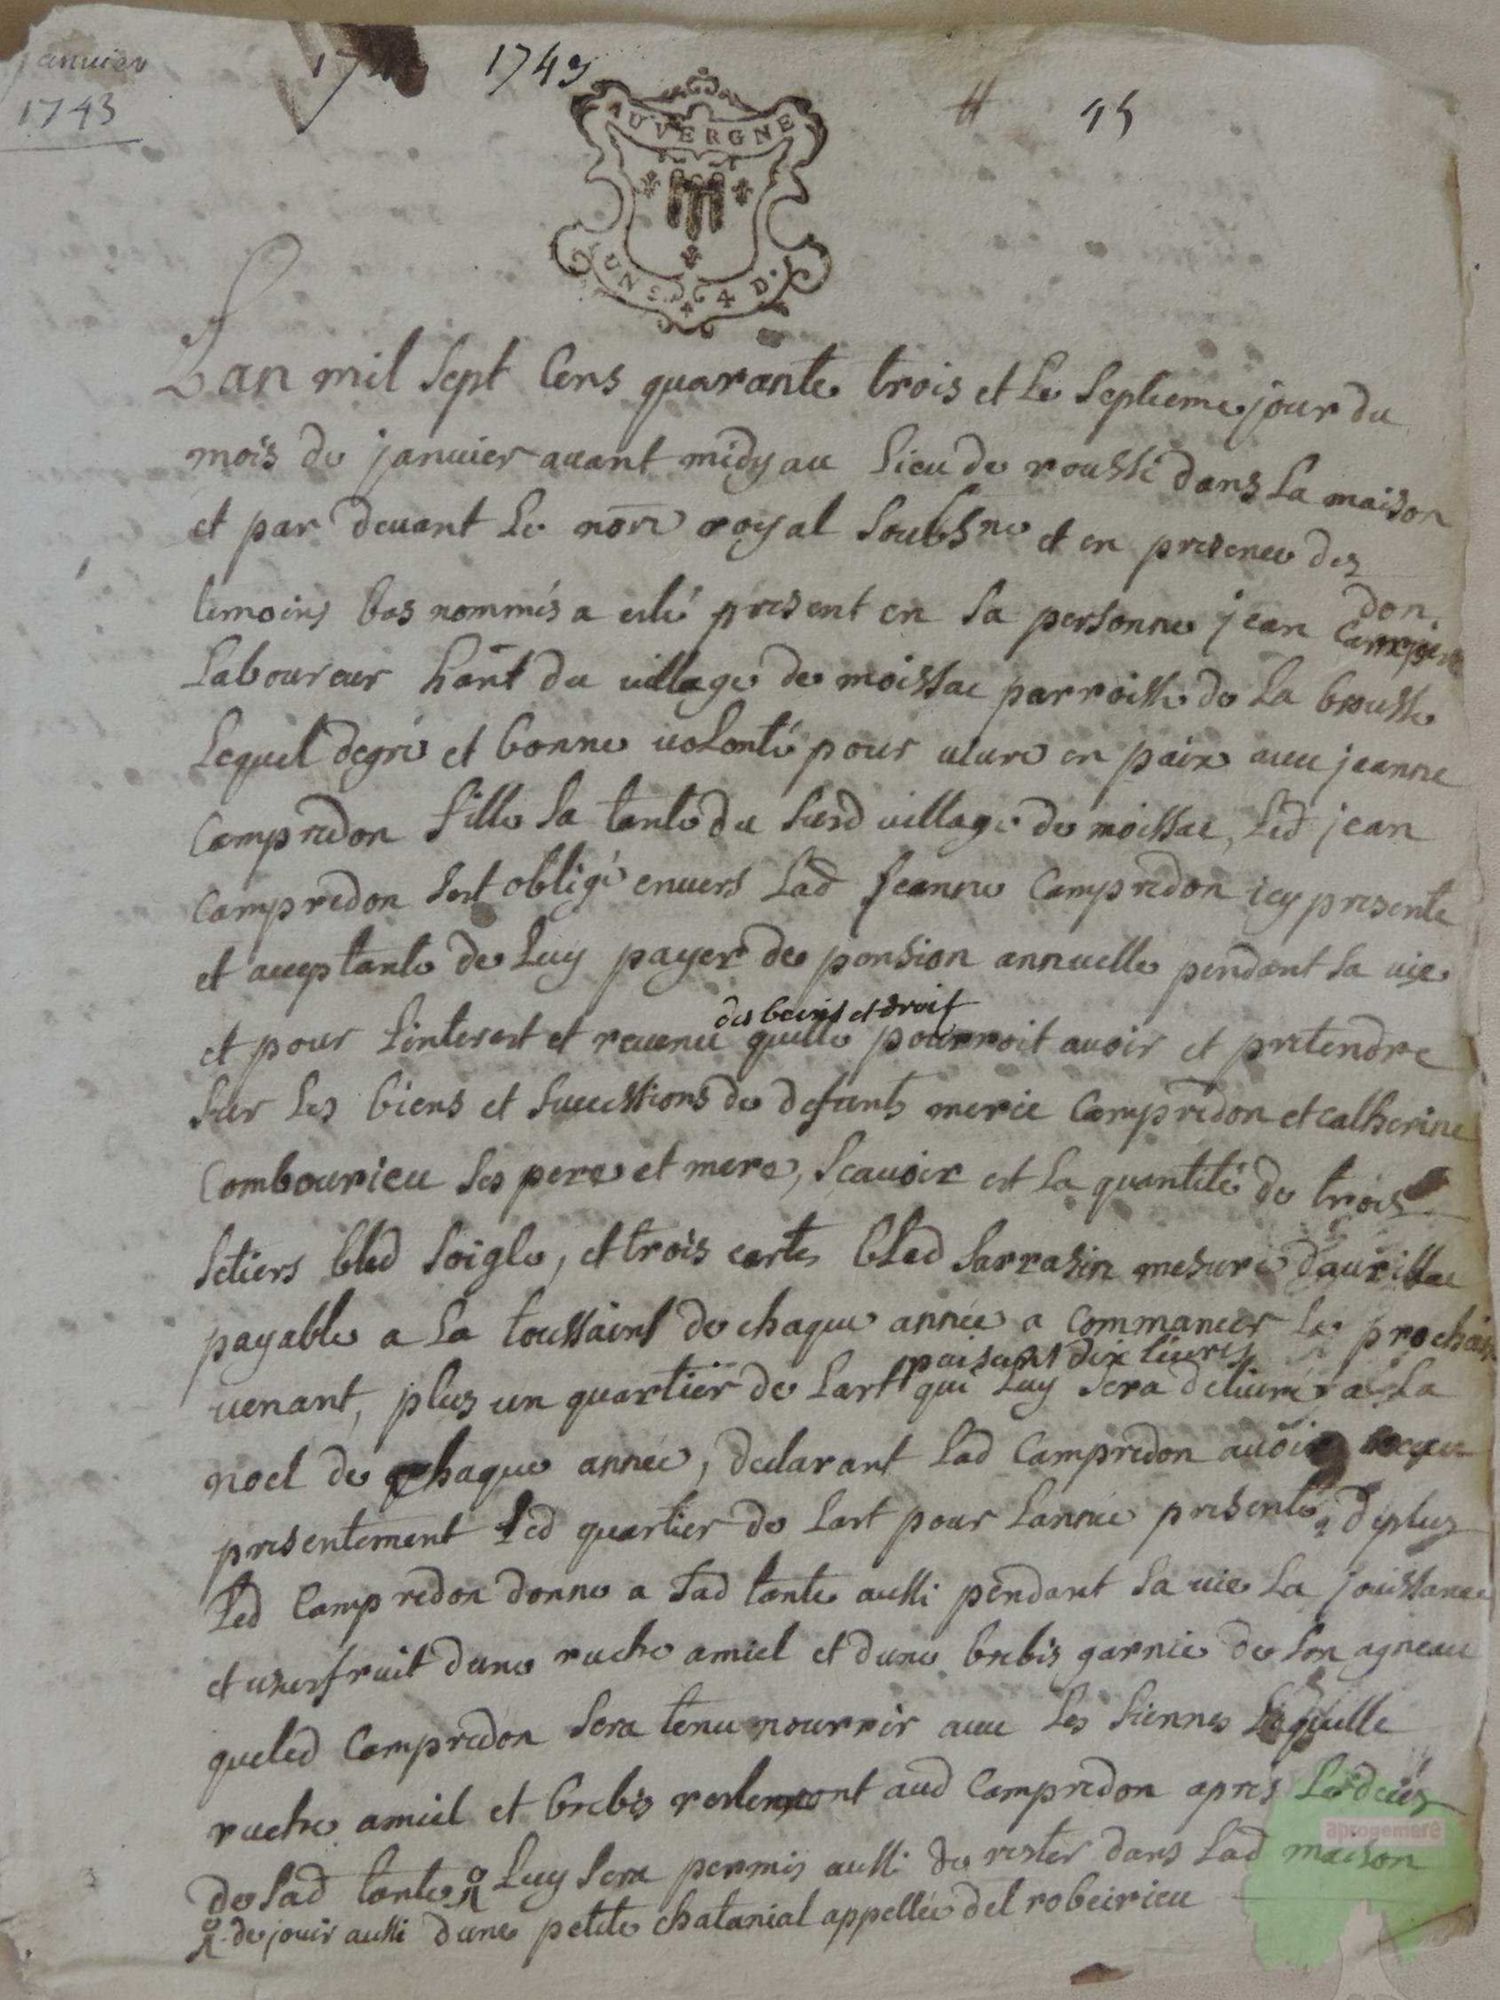 janvier
1743
1743
45
AUVERGNE
UN S. 4 D.
Lan mil sept Cens quarante trois et le septieme jour du
mois de janvier avant midy au lieu de roussi dans la maison
et par devant le nore royal soubsne et en presence des
temoins bas nommés a esté present en sa personne jean Campre
don
Laboureur hant du village de moissac parroisse de La brousse
Lequel degré et bonne volonté pour vivre en paix avec jeanne
Campredon fille sa tante du susd village de moissac, Led jean
Campredon sest obligé envers Lad jeanne Campredon icy presente
et acceptante de Luy payer de pension annuelle pendant sa vie
des beins et droit
et pour Linterest et revenu quelle pourroit avoir et pretendre
sur Les biens et successions de defunts meric Campredon et catherine
Combourieu ses pere et mere, scavoir est La quantité de trois
setiers bled seigle, et trois cartes bled sarrasin mesure daurillac
payable a La toussaint de chaque année a commancer La prochaine
paisant dix livres
venant, plus un quartier de Lart qui Luy sera delivré a La
noel de chaque année, declarant Lad Campredon avoir receu
presentement Led quartier de Lart pour Lannée presente, deplus
Led Campredon donne a sad tante aussi pendant sa vie La jouissance
et usufruit dune ruche amiel et dune brebis garnie de son agneau
queled Campredon sera tenu nourrir avec Les siennes Laquelle
ruche amiel et brebis resteront aud Campredon apres Le deces
de Lad tante Luy sera permis aussi de rester dans Lad maison
de jouir aussi dune petite chatanial appellée del robeirieu
aprogemere